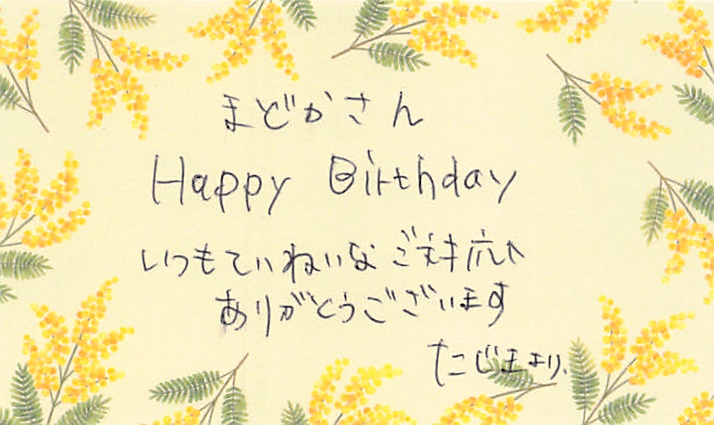 まどかさん
Happy Birthday
いつもていねいなご対応
ありがとうございます
たじまより.